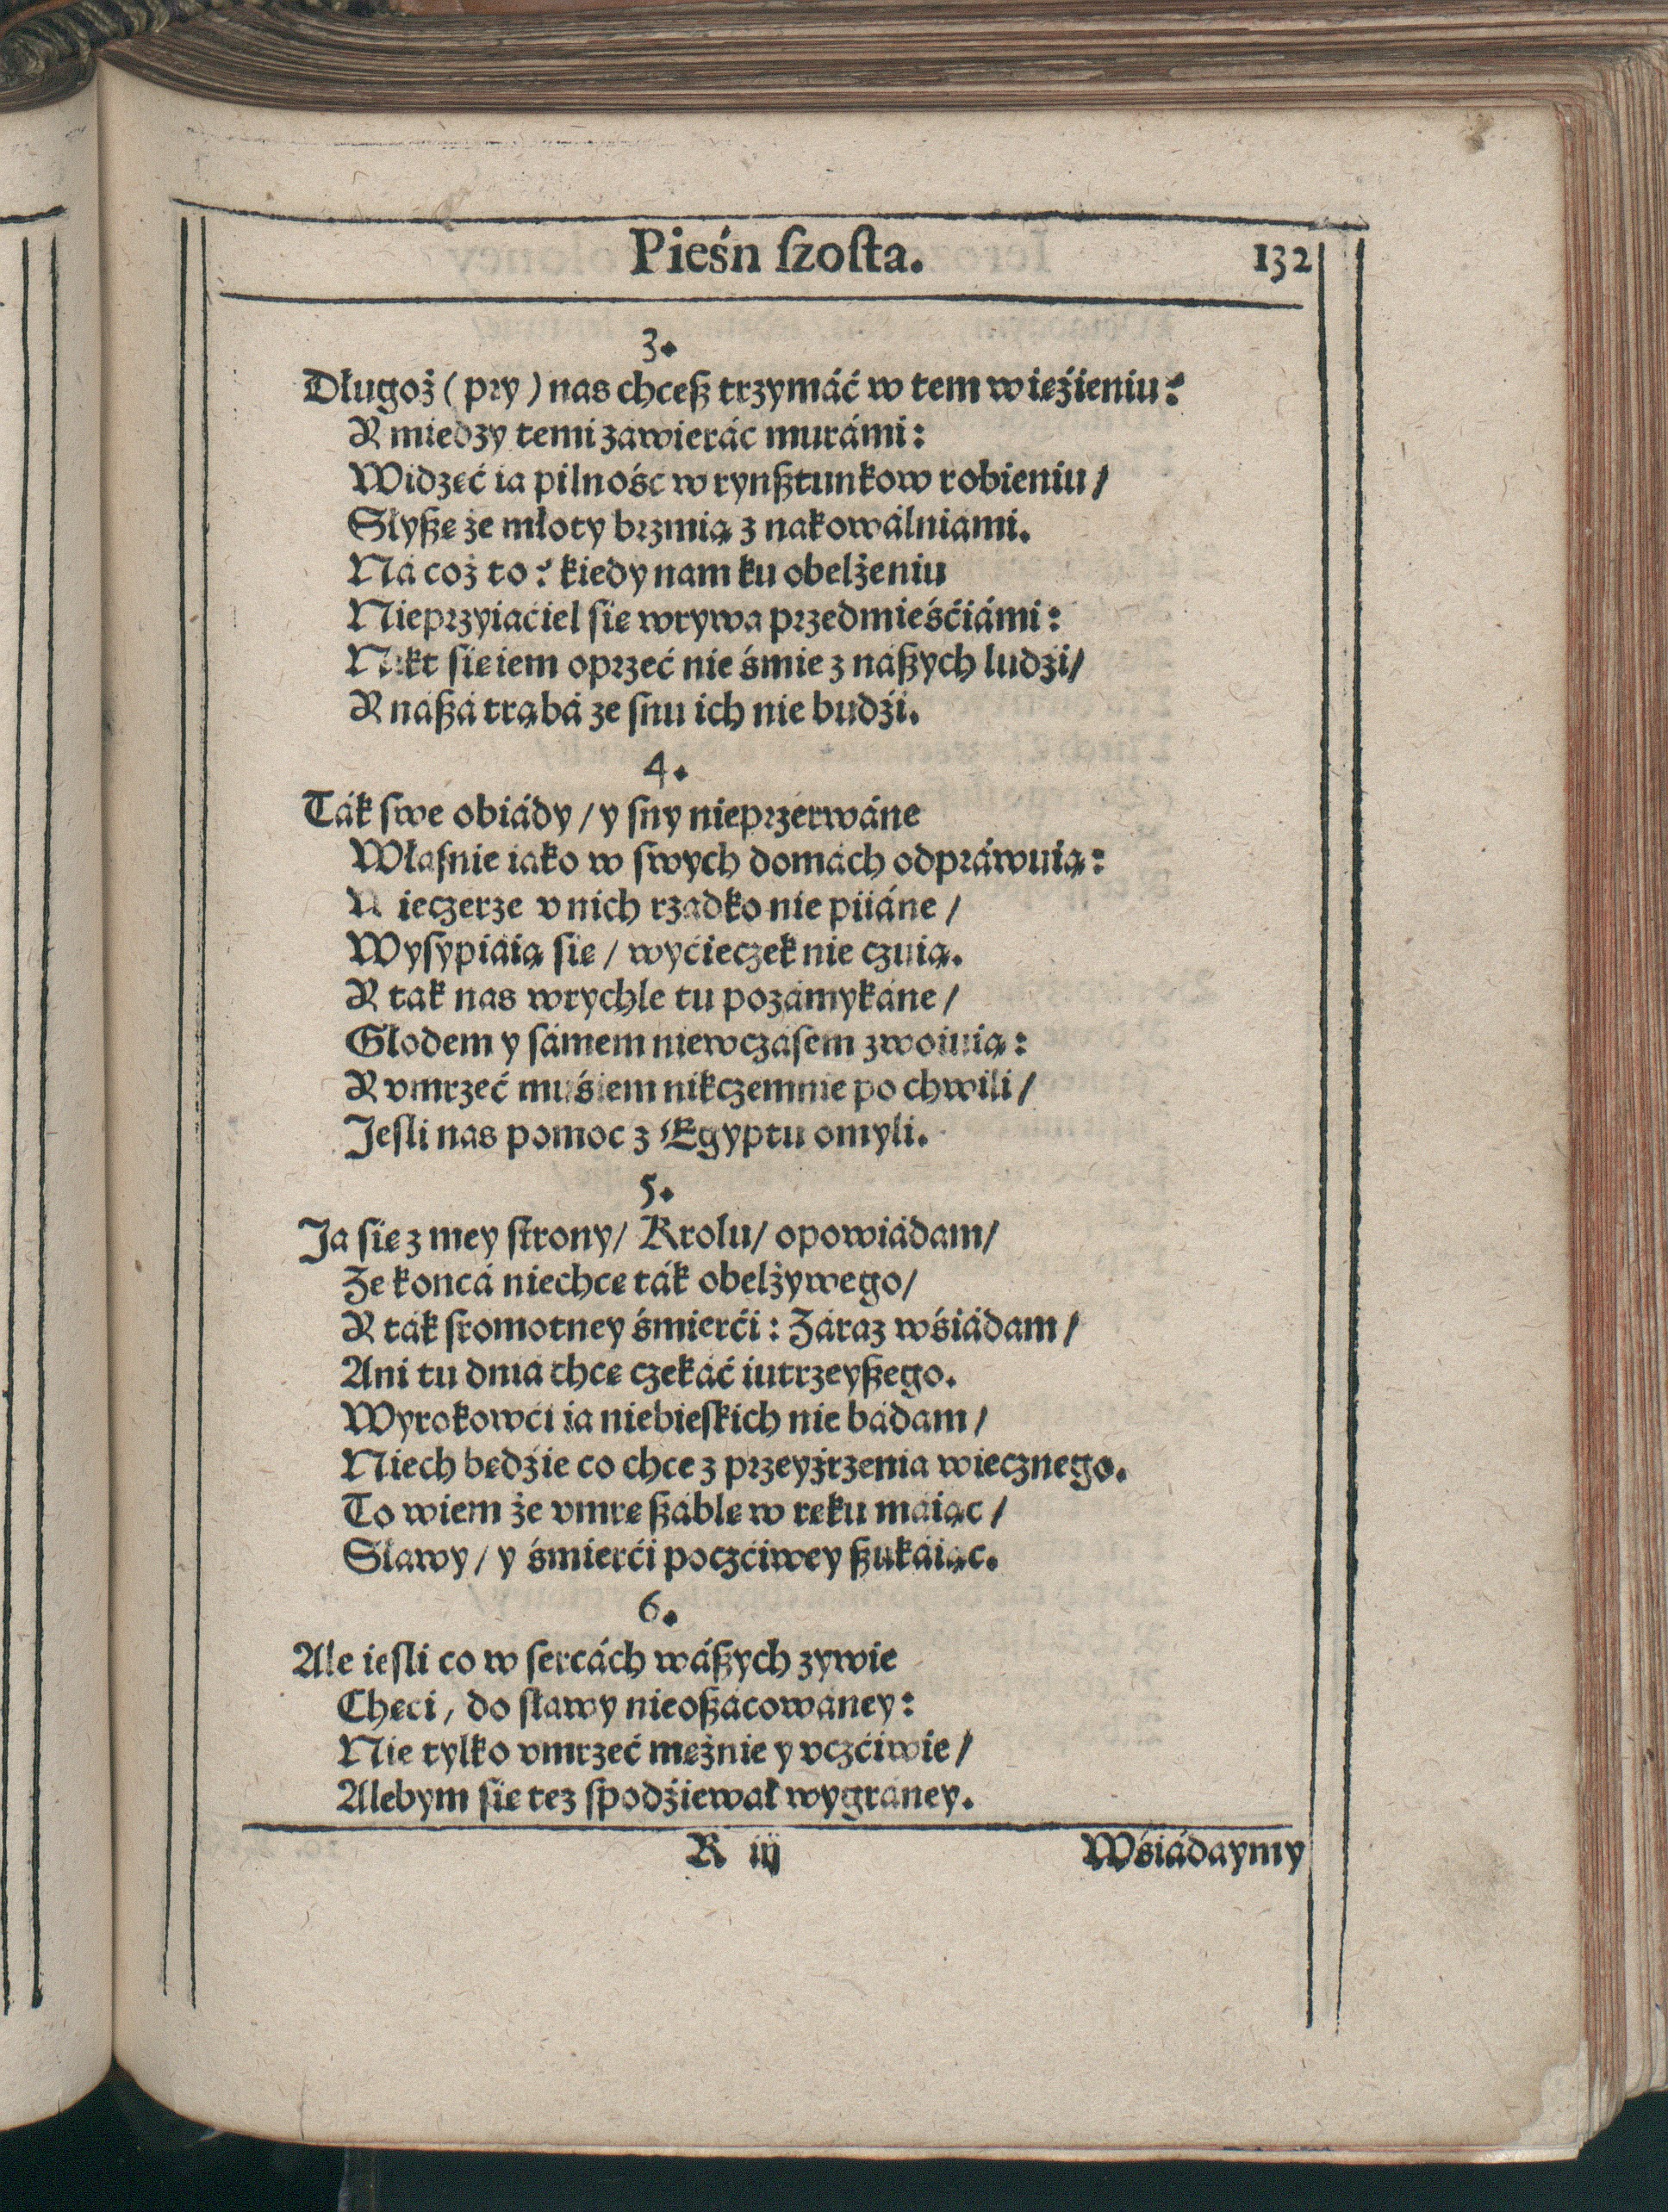 Pieśn ſzoſta. 132
3.
Długoż (pry) nas chceſz trzymáć w tem więźieniu?
A miedzy temi záwieráć murámi:
Widzęć ia pilność w rynſztunkow robieniu/
Słyſzę że młoty brzmią z nakowálniámi.
Ná coż to? kiedy nam ku obelżeniu
Nieprzyiaćiel ſię wrywa przedmieśćiámi:
Nikt ſię iem oprzeć nie śmie z náſzych ludźi/
A náſzá trąbá ze ſnu ich nie budźi.
4.
Ták ſwe obiády/ y ſny nieprzerwáne
Własnie iako w ſwych domách odpráwuią:
Wieczerze v nich rzadko nie piiáne/
Wyſypiáią ſię/ wyćieczek nie czuią.
A tak nas wrychle tu pozámykáne/
Głodem y ſámem niewczáſem zwoiuią:
A vmrzeć muśiem nikczemnie po chwili/
Jeſli nas pomoc z Egyptu omyli.
5.
Ja ſię z mey ſtrony/ Krolu/ opowiádam/
Że końcá niechcę ták obelżywego/
A ták ſromotney śmierći: Záraz wśiádam/
Ani tu dniá chcę czekáć iutrzeyſzego.
Wyrokowći ia niebieſkich nie bádam/
Niech będźie co chce z przeyźrzenia wiecznego.
To wiem że vmrę ſzáblę w ręku máiąc/
Sławy/ y śmierći poczćiwey ſzukáiąc.
6.
Ale ieſli co w ſercách wáſzych zywie
Chęci, do ſławy nieoſzácowáney:
Nie tylko vmrzeć mężnie y vczćiwie/
Alebym ſię tez ſpodźiewał wygráney.
R iij Wśiádaymy